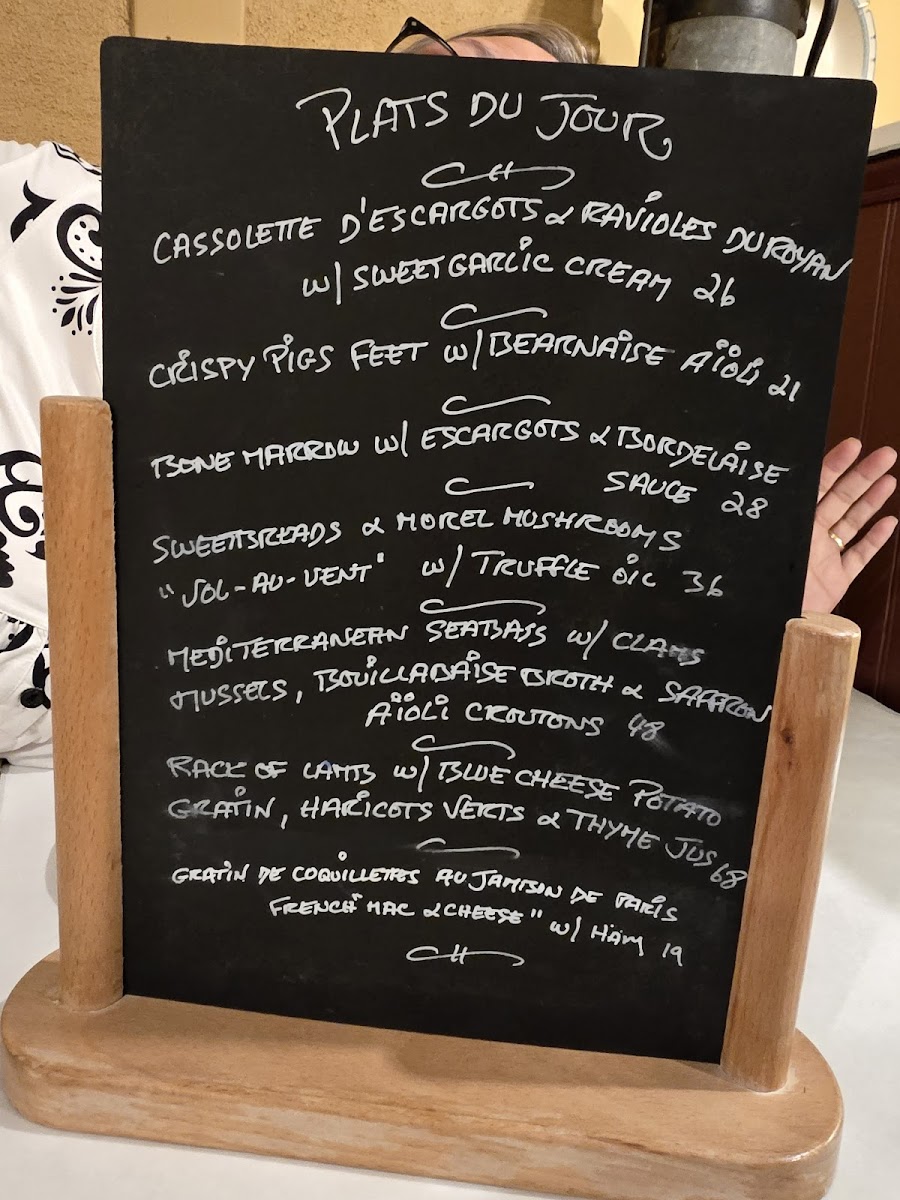 PLATS DU JOUR
CASSOLETTE D'ESCARGOTS & RAVIOLES DU ROYAN
W/ SWEET GARLIC CREAM 26
CRISPY PIGS FEET W/ BEARNAISE AÏOLI 21
BONE MARROW W/ ESCARGOTS & BORDELAISE
SAUCE 28
SWEETBREADS & MOREL MUSHROOMS
"VOL-AU-VENT" W/ TRUFFLE OIL 36
MEDITERRANEAN SEABASS W/ CLAMS
MUSSELS, BOUILLABAISE BROTH & SAFFRON
AÏOLI CROUTONS 48
RACK OF LAMB W/ BLUE CHEESE POTATO
GRATIN, HARICOTS VERTS & THYME JUS 68
GRATIN DE COQUILLETTES AU JAMBON DE PARIS
FRENCH "MAC & CHEESE" W/ HAM 19